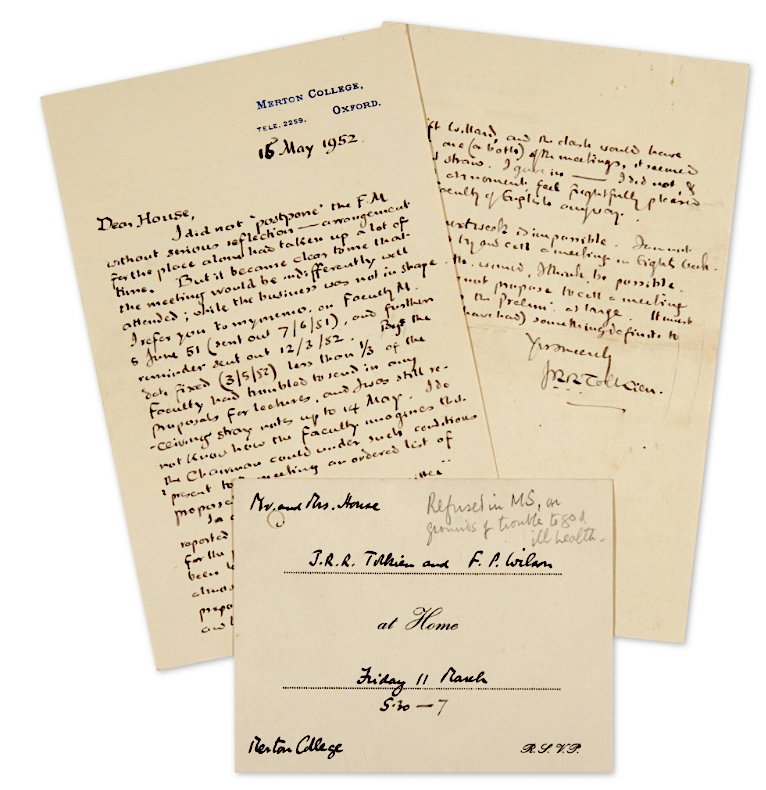 MERTON COLLEGE,
OXFORD.
TELE. 2259.
16 May 1952.
Dear House,
I did not "postpone" the F.M
without serious reflection — arrangement
for the place alone had taken up a lot of
time. But it became clear to me that
the meeting would be indifferently well
attended; while the business was not in shape
I refer you to my memo. on Faculty M.
5 June 51 (sent out 7/6/51), and further
reminder sent out 12/3/52. By the
date fixed (3/5/52) less than 1/3 of the
Faculty had troubled to send in any
proposals for lectures, and I was still re-
-ceiving stray notes up to 14 May. I do
not know how the Faculty imagines that
the Chairman could under such conditions
present to meeting an ordered list of
propose
reported
for the
been
prepo
and
and the clash would have
one (or both) of the meetings, it seemed
straw. I gave in — I did not &
moment feel frightfully pleased
Faculty of English anyway.
next week is impossible. I am not
try and call a meeting in Eight week.
would, I think, be possible.
not propose to call a meeting
the Prelim. at large. It must
have had) something definite to
Yrs sincerely
JRR Tolkien.
Mr. and Mrs. House
Refused in MS, on
grounds of trouble to god
ill health.
J.R.R. Tolkien and F. P. Wilson
at Home
Friday 11 March
5.30 — 7
Merton College
R.S.V.P.